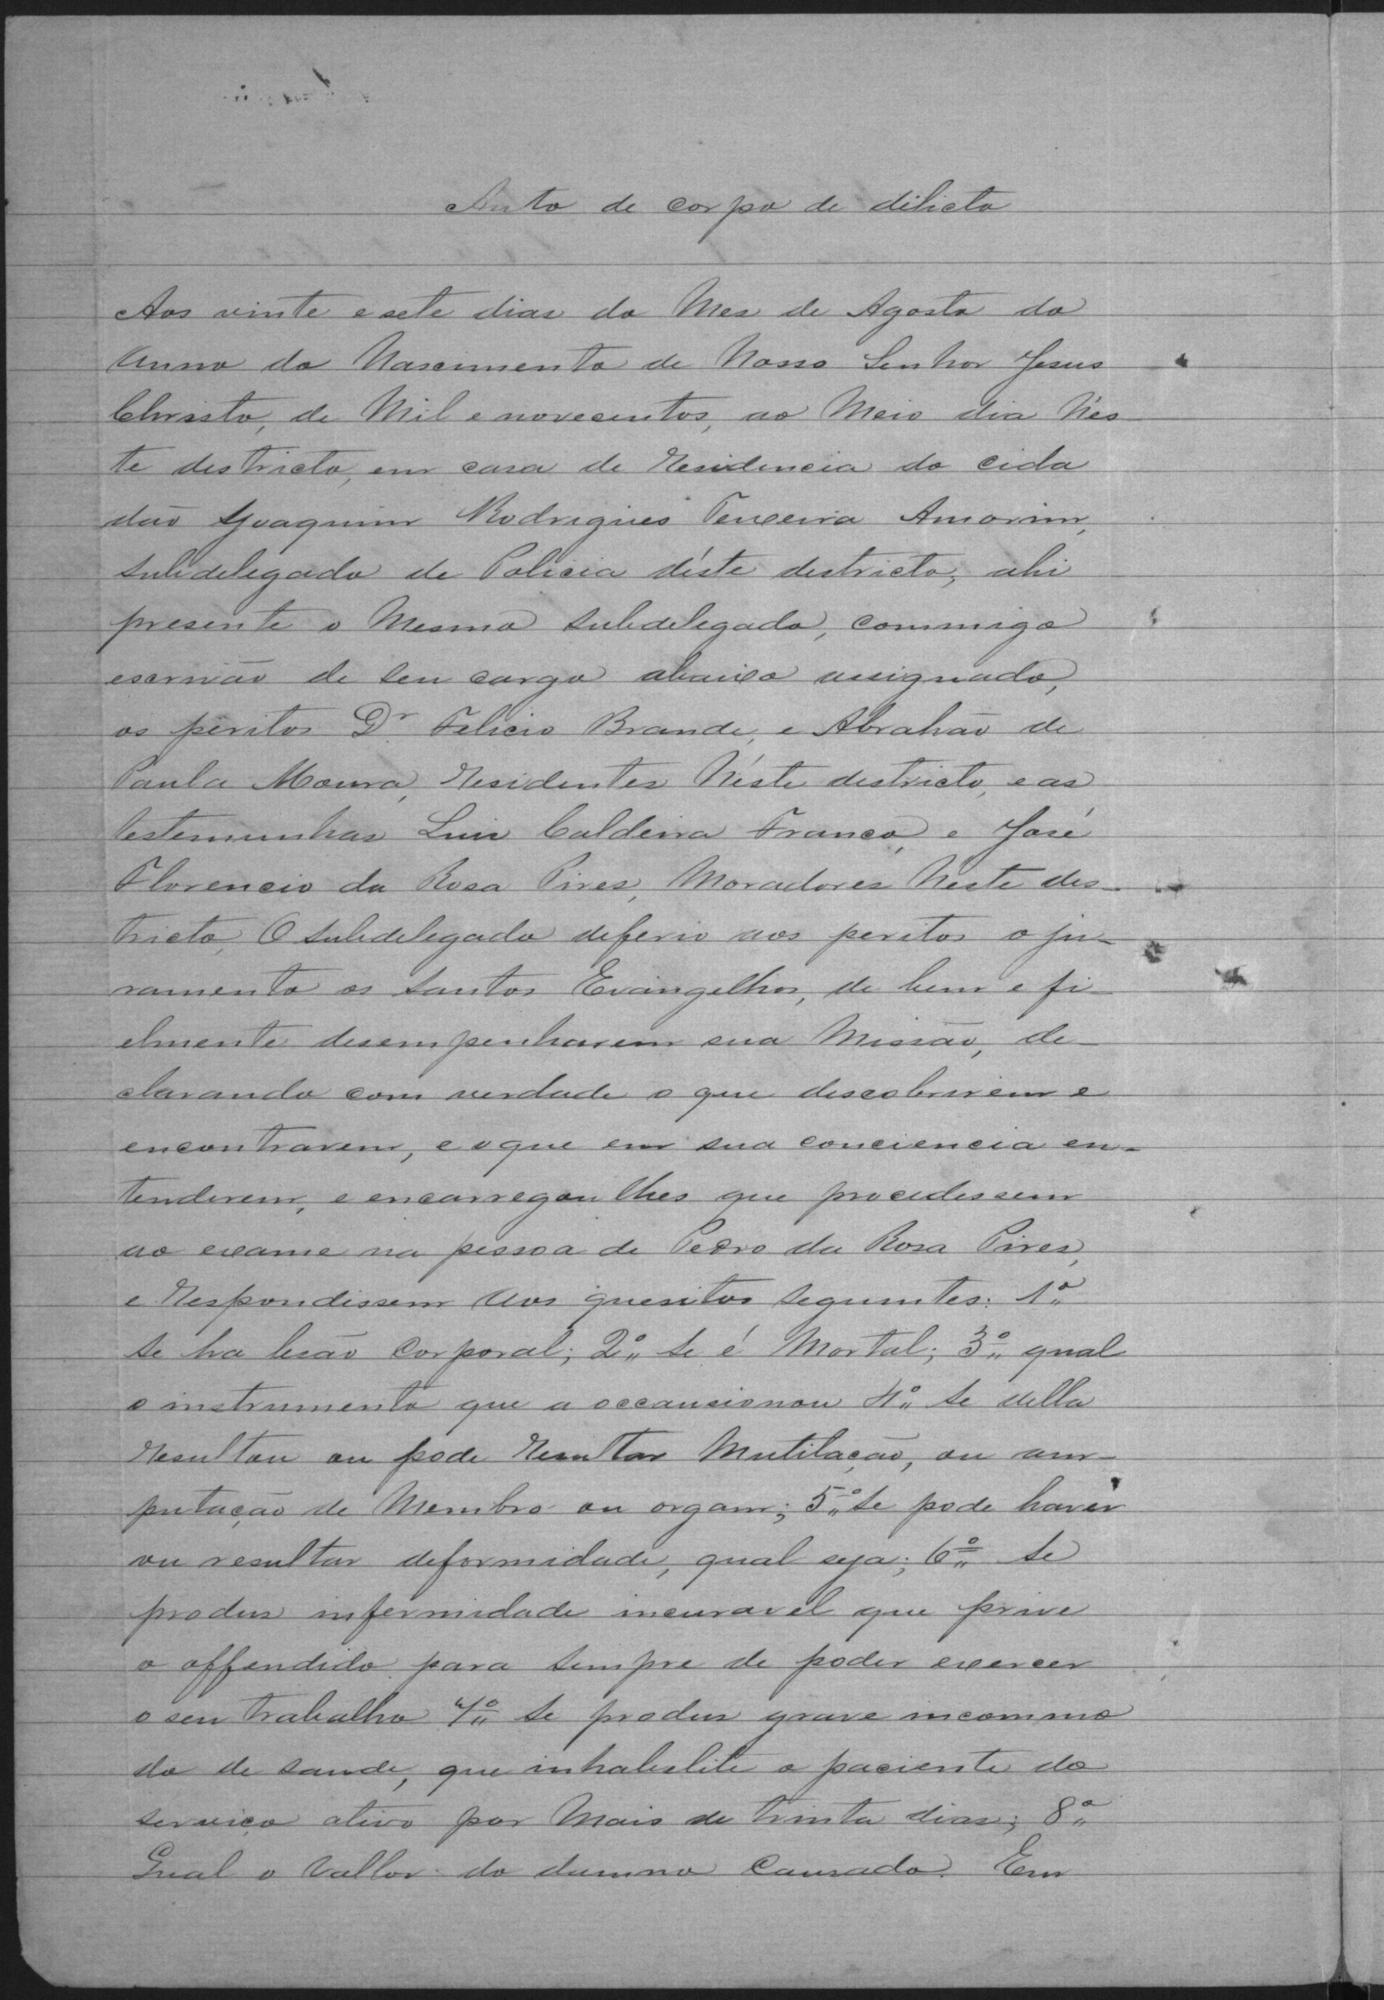 Auto de corpo de dilicto
Aos vinte e sete dias do Mes de Agosto do
Anno do Nascimento de Nosso Senhor Jesus
Christo, de Mil e novecentos, ao Meio dia Nes
te destricto, em casa de Residencia do cida
dão Joaquim Rodrigues Teixeira Amorim,
subdelegado de Policia déste destricto, ahi
presente o Mesmo subdelegado, commigo
escrivão de seu cargo abaixo assignado,
os péritos Dr Felicio Brande, e Abrahão de
Paula Moura, Residentes Néste destricto, e as
testemunhas Luis Caldeira Franco, e José
Florencio da Rosa Pires, Moradores Neste des-
tricto, O subdelegado deferio aos peritos o ju-
ramento os Santos Evangelhos, de bem e fi-
elmente desempenharem sua Missão, de-
clarando com verdade o que descobrirem e
encontrarem, e o que em sua conciencia en-
tenderem, e encarregou lhes que procedessem
ao exame na pessoa de Pedro da Rosa Pires,
e Respondissem aos quesitos seguintes: 1º
se ha lesão corporal; 2º se é Mortal; 3º qual
o instrumento que a occausionou 4º se della
Resultou ou pode Resultar Mutilação, ou am-
putação de Membro ou orgam; 5º se pode haver
ou resultar deformidade, qual seja; 6º se
produs infermidade incuravel que prive
o offendido para sempre de poder exercer
o seu trabalho 7º se produs grave incommo
do de saude, que inhabelite o paciente do
serviço ativo por Mais de trinta dias; 8º
Qual o Vallor do damno Causado. Em